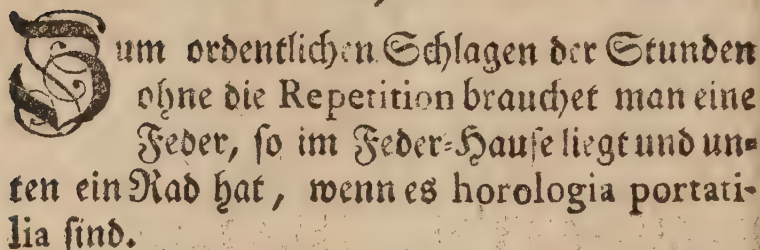 Zum ordentlichen Schlagen der Stunden
ohne die Repetition brauchet man eine
Feder, so im Feder-Hause liegt und un-
ten ein Rad hat, wenn es horologia portati-
lia sind.